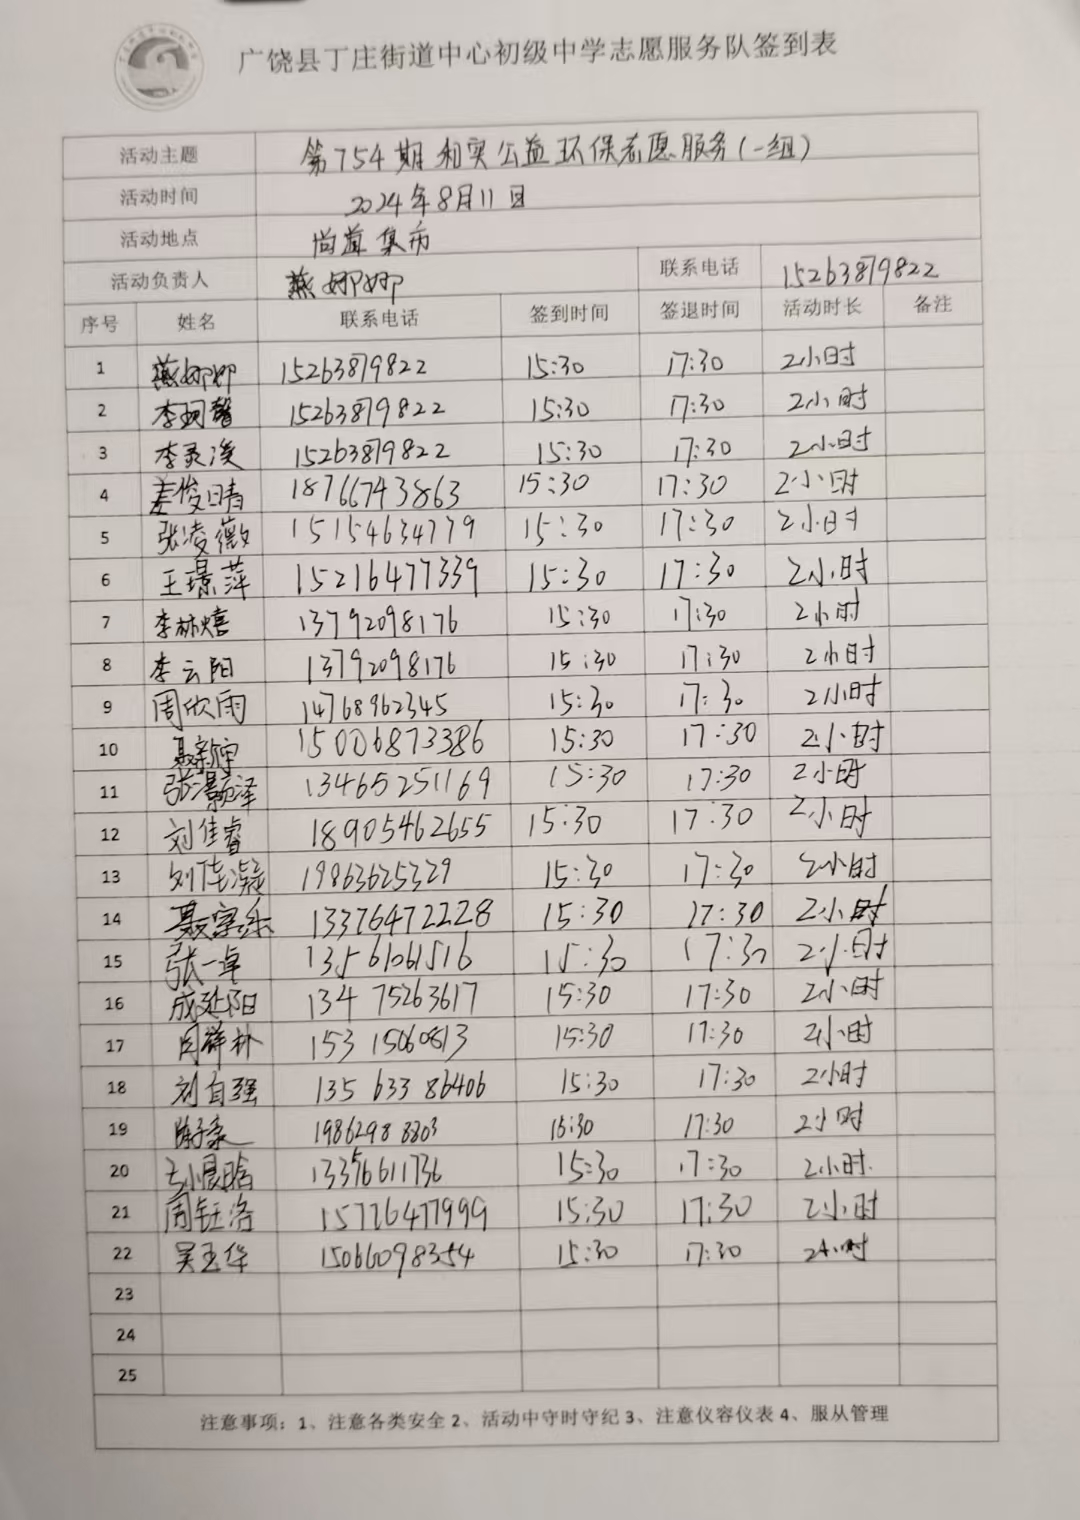 广饶县丁庄街道中心初级中学志愿服务队签到表
活动主题 第754期和实公益环保志愿服务(一组)
活动时间 2024年8月11日
活动地点 尚道集市
活动负责人 燕娜娜 联系电话 15263879822
序号 姓名 联系电话 签到时间 签退时间 活动时长 备注
1 燕娜娜 15263879822 15:30 17:30 2小时
2 李珂馨 15263879822 15:30 17:30 2小时
3 李灵溪 15263879822 15:30 17:30 2小时
4 姜俊晴 18766743863 15:30 17:30 2小时
5 张凌薇 15154634779 15:30 17:30 2小时
6 王璟萍 15216477339 15:30 17:30 2小时
7 李林熺 13792098176 15:30 17:30 2小时
8 李云阳 13792098176 15:30 17:30 2小时
9 周欣雨 14768962345 15:30 17:30 2小时
10 聂新宇 15006873386 15:30 17:30 2小时
11 张灏泽 13465251169 15:30 17:30 2小时
12 刘佳睿 18905462655 15:30 17:30 2小时
13 刘佳凝 19863625329 15:30 17:30 2小时
14 聂宇乐 13376472228 15:30 17:30 2小时
15 张一卓 13561061516 15:30 17:30 2小时
16 成延阳 134 75263617 15:30 17:30 2小时
17 周祥朴 153 15060813 15:30 17:30 2小时
18 刘自强 135 633 86406 15:30 17:30 2小时
19 陈子豪 1986298 8803 15:30 17:30 2小时
20 13376611736 15:30 17:30 2小时
21 周钰洛 15726477999 15:30 17:30 2小时
22 吴玉华 15066098354 15:30 17:30 2小时
23
24
25
注意事项：1、注意各类安全 2、活动中守时守纪 3、注意仪容仪表 4、服从管理